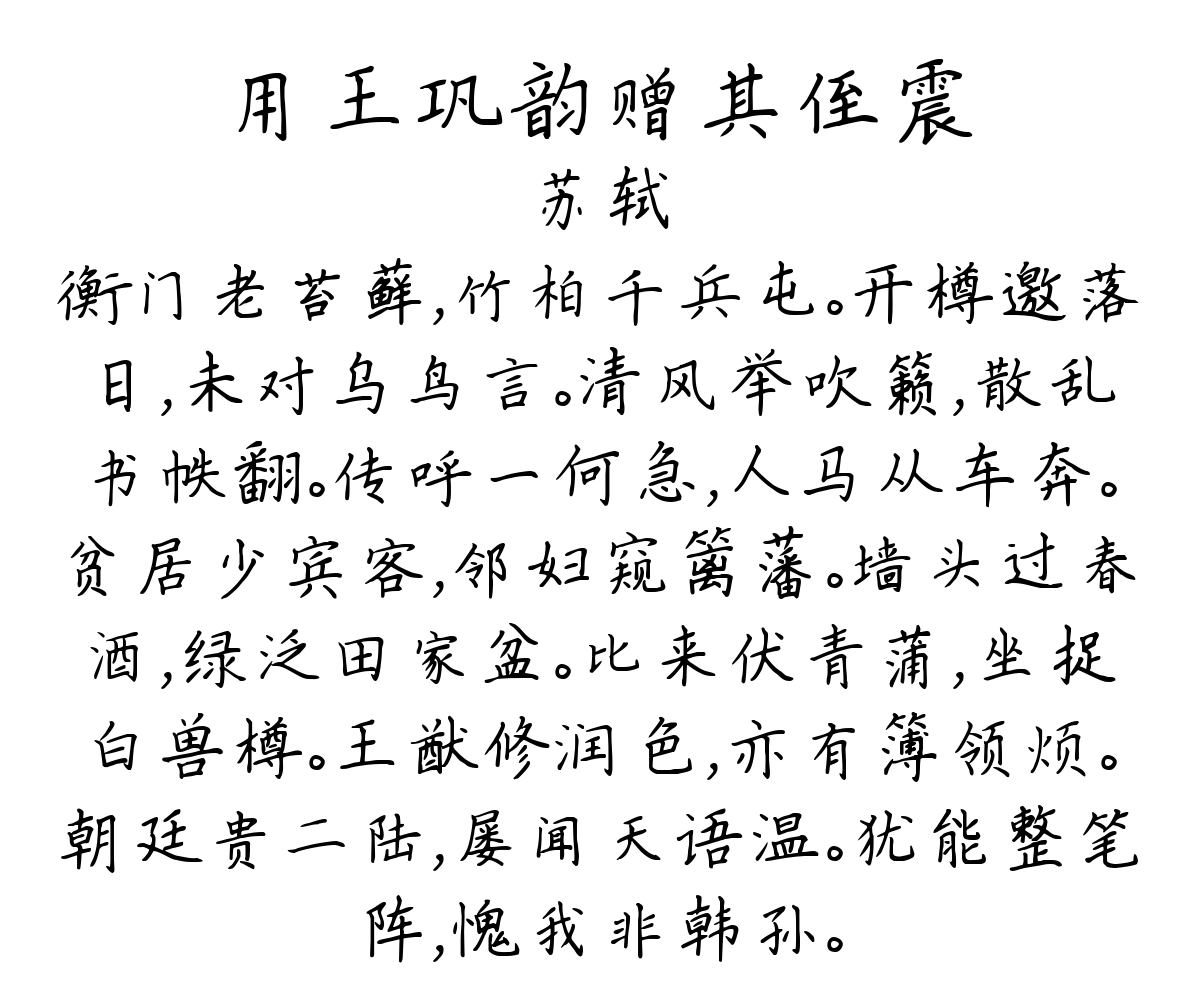 用王巩韵赠其侄震
苏轼
衡门老苔藓,竹柏千兵屯。开樽邀落
日,未对乌鸟言。清风举吹籁,散乱
书帙翻。传呼一何急,人马从车奔。
贫居少宾客,邻妇窥篱藩。墙头过春
酒,绿泛田家盆。比来伏青蒲,坐捉
白兽樽。王猷修润色,亦有簿领烦。
朝廷贵二陆,屡闻天语温。犹能整笔
阵,愧我非韩孙。